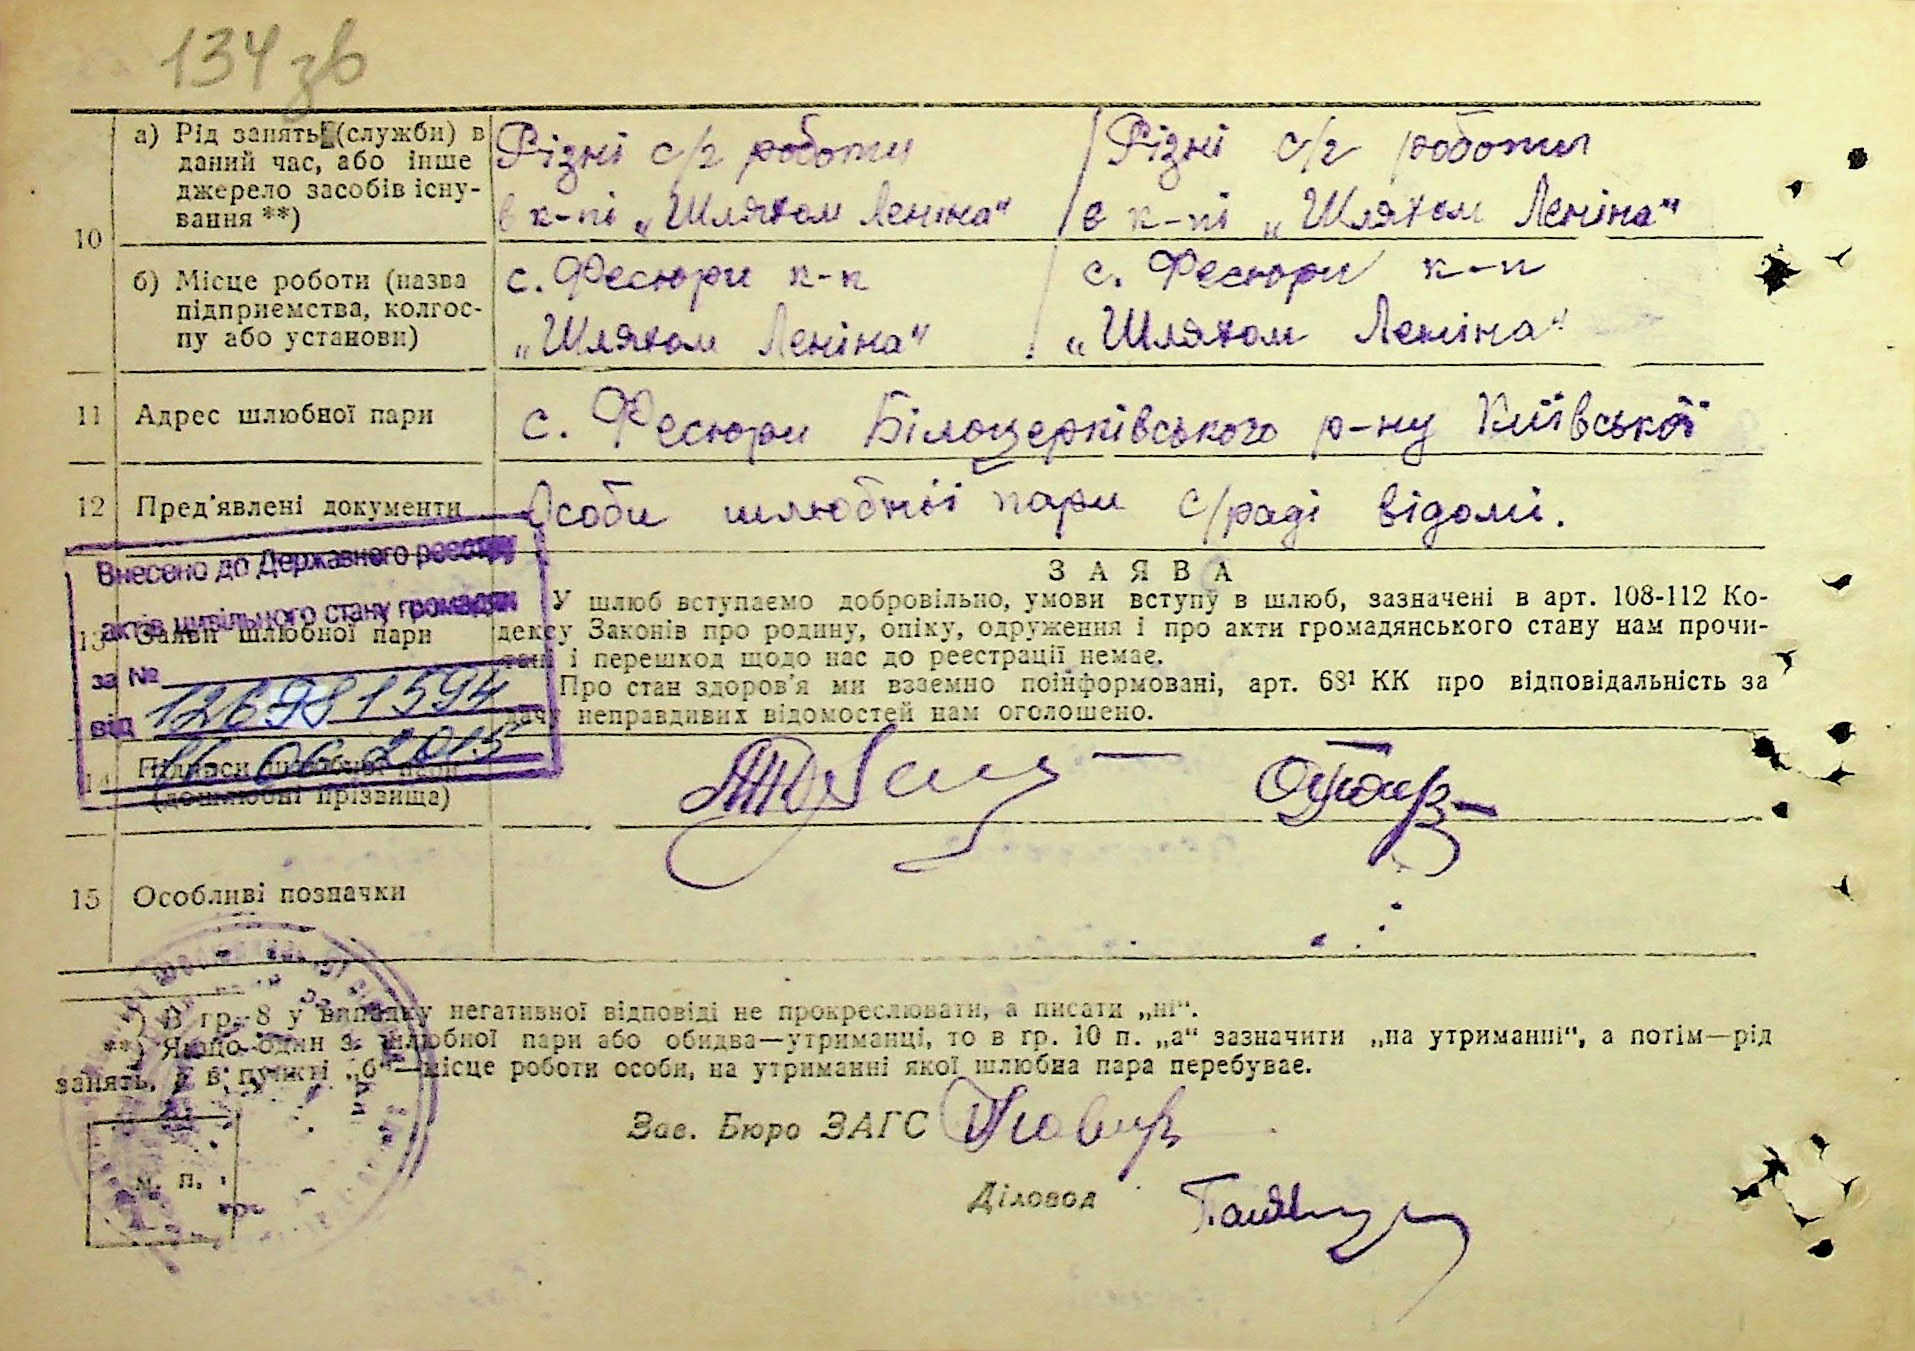 134 зв
10
а) Рід занять (служби) в
даний час, або інше
джерело засобів існу-
вання **)
Різні с/г роботи
в к-пі „Шляхом Леніна"
Різні с/г роботи
в к-пі „Шляхом Леніна"
б) Місце роботи (назва
підприємства, колгос-
пу або установи)
с. Фесюри к-п
„Шляхом Леніна"
с. Фесюри к-п
„Шляхом Леніна"
11 Адрес шлюбної пари
с. Фесюри Білоцерківського р-ну Київської
12 Пред'явлені документи
Особи шлюбної пари с/раді відомі.
Внесено до Державного реєстру
актів цивільного стану громадян
за №
126981594
від
16 06 2015
13 Заяви шлюбної пари
ЗАЯВА
У шлюб вступаємо добровільно, умови вступу в шлюб, зазначені в арт. 108-112 Ко-
дексу Законів про родину, опіку, одруження і про акти громадянського стану нам прочи-
тані і перешкод щодо нас до реєстрації немає.
Про стан здоров'я ми взаємно поінформовані, арт. 68¹ КК про відповідальність за
дачу неправдивих відомостей нам оголошено.
14 Підписи шлюбної пари
(дошлюбні прізвища)
15 Особливі позначки
*) В гр. 8 у випадку негативної відповіді не прокреслювати, а писати „ні".
**) Якщо один з шлюбної пари або обидва—утриманці, то в гр. 10 п. „а" зазначити „на утриманні", а потім—рід
занять, а в пункті „б"—місце роботи особи, на утриманні якої шлюбна пара перебуває.
Зав. Бюро ЗАГС
Діловод
м. п.